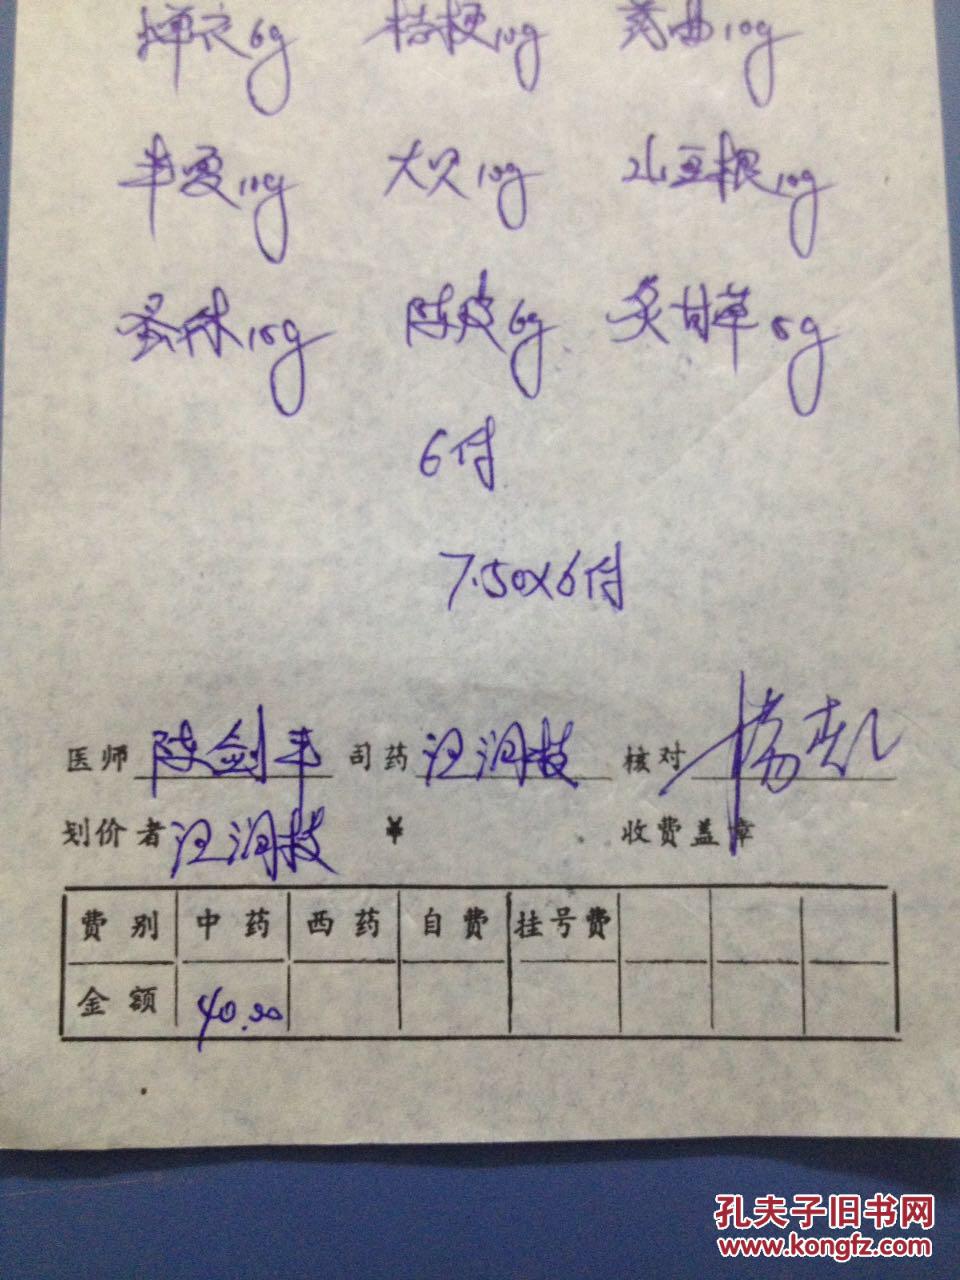 蝉衣6g 桔梗10g 药曲10g
半夏10g 大贝10g 山豆根10g
蚤休15g 陈皮6g 炙甘草5g
6付
7.50×6付
医师 陈剑平 司药 汪润枝 核对 杨
划价者 汪润枝 ¥ 收费盖章
费别 中药 西药 自费 挂号费
金额 40.20
孔夫子旧书网
www.kongfz.com